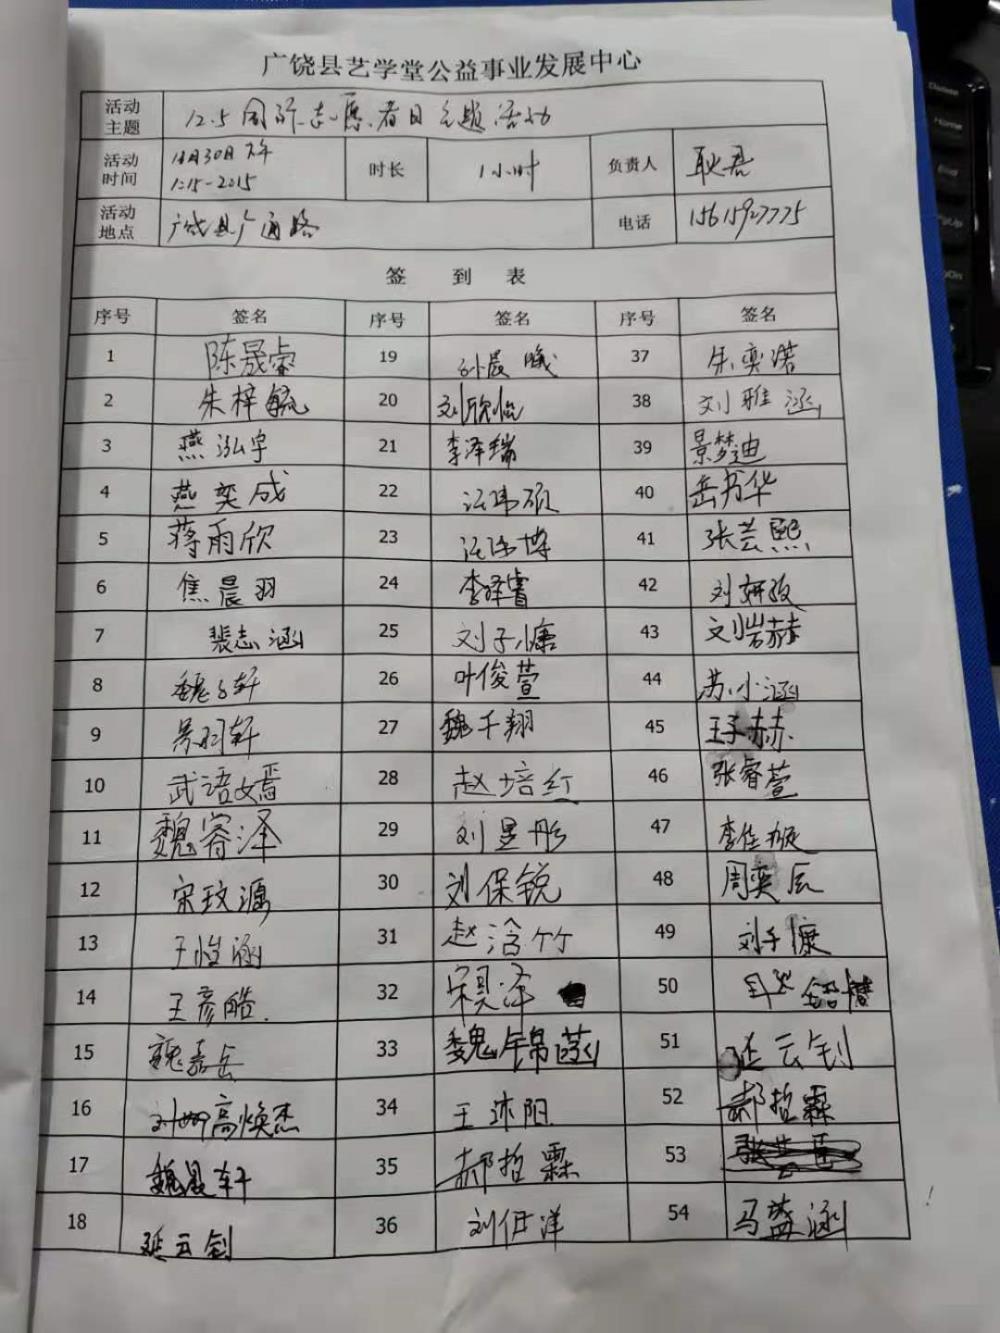 广饶县艺学堂公益事业发展中心
活动主题 12.5国际志愿者日主题活动
活动时间 11月30日下午 1:15-2:15 时长 1小时 负责人 耿君
活动地点 广饶县广通路 电话 15615927775
签 到 表
序号 签名 序号 签名 序号 签名
1 陈晟睿 19 孙晨曦 37 朱奕诺
2 朱梓毓 20 刘欣怡 38 刘雅涵
3 燕泓宇 21 李泽瑞 39 景梦迪
4 燕奕成 22 汪玮硕 40 岳书华
5 蒋雨欣 23 汪玮博 41 张芸熙
6 焦晨羽 24 李泽睿 42 刘妍孜
7 裴志涵 25 刘子慷 43 刘岩赫
8 魏子轩 26 叶俊萱 44 苏小涵
9 吴羽轩 27 魏千翔 45 王子赫
10 武语嫣 28 赵培红 46 张睿萱
11 魏睿泽 29 刘昱彤 47 李佳璇
12 宋玟潞 30 刘保锐 48 周奕辰
13 王恺涵 31 赵浛竹 49 刘子慷
14 王彦皓 32 宋昊泽 50
15 魏嘉岳 33 魏锦涵 51 延云钊
16 高焕杰 34 王沐阳 52 郝哲霖
17 魏晟轩 35 郝哲霖 53
18 延云钊 36 刘伊洋 54 马萱涵